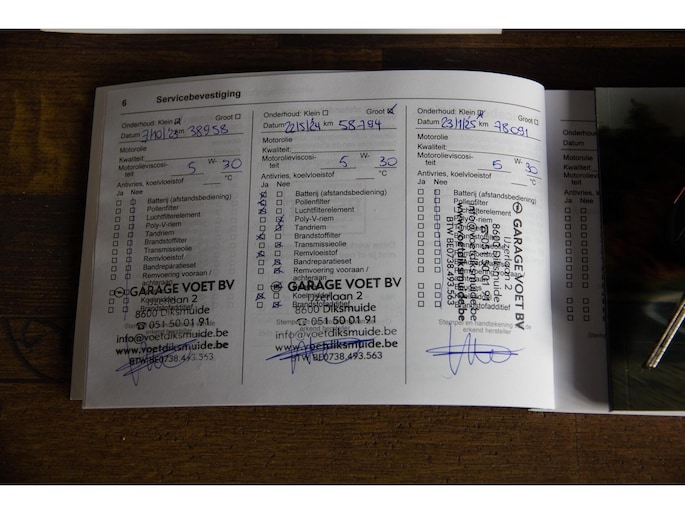 6 Servicebevestiging
Onderhoud: Klein Groot
Datum 7/10/23 km 38958
Motorolie
Kwaliteit:
Motorolieviscosi-teit 5 W- 30
Antivries, koelvloeistof °C
Ja Nee
Batterij (afstandsbediening)
Pollenfilter
Luchtfilterelement
Poly-V-riem
Tandriem
Brandstoffilter
Transmissieolie
Remvloeistof
Bandreparatieset
Remvoering vooraan / achteraan
GARAGE VOET BV
IJzerlaan 2
8600 Diksmuide
☎ 051 50 01 91
info@voetdiksmuide.be
www.voetdiksmuide.be
BTW BE0738.493.563
Onderhoud: Klein Groot
Datum 22/5/24 km 58794
Motorolie
Kwaliteit:
Motorolieviscosi-teit 5 W- 30
Antivries, koelvloeistof °C
Ja Nee
Batterij (afstandsbediening)
Pollenfilter
Luchtfilterelement
Poly-V-riem
Tandriem
Brandstoffilter
Transmissieolie
Remvloeistof
Bandreparatieset
Remvoering vooraan / achteraan
GARAGE VOET BV
IJzerlaan 2
8600 Diksmuide
☎ 051 50 01 91
info@voetdiksmuide.be
www.voetdiksmuide.be
BTW BE0738.493.563
Onderhoud: Klein Groot
Datum 23/1/25 km 78091
Motorolie
Kwaliteit:
Motorolieviscosi-teit 5 W- 30
Antivries, koelvloeistof °C
Ja Nee
Batterij (afstandsbediening)
Pollenfilter
Luchtfilterelement
Poly-V-riem
Tandriem
Brandstoffilter
Transmissieolie
Remvloeistof
Bandreparatieset
Remvoering vooraan /
Stempel en handtekening
erkend hersteller
GARAGE VOET BV
IJzerlaan 2
8600 Diksmuide
☎ 051 50 01 91
info@voetdiksmuide.be
www.voetdiksmuide.be
BTW BE0738.493.563